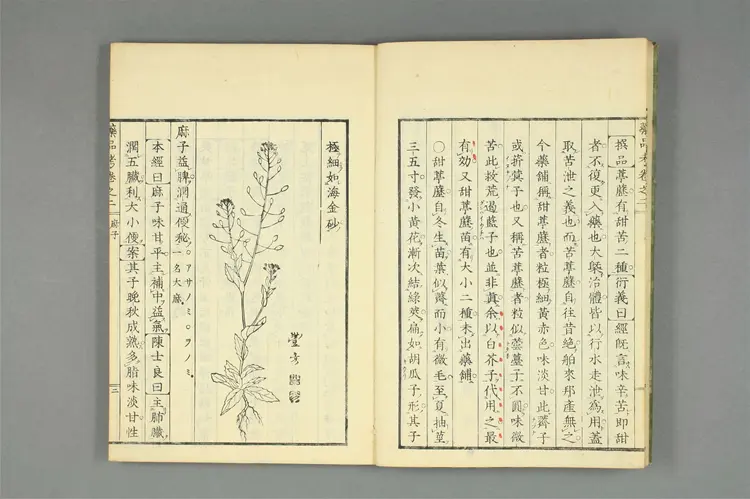 撰品葶藶有甜苦二種衍義曰經既言味辛苦即甜
者不復更入藥也大槩治體皆以行水走泄為用蓋
取苦泄之義也而苦葶藶自往昔絶舶來邦產無之
今藥舖稱甜葶藶者粒極細黃赤色味淡甘此薺子
或菥蓂子也又稱苦葶藶者粒似蕓薹子不圓味微
苦此救荒遏藍子也並非真余以白芥子代用之最
有効又甜葶藶苗有大小二種未出藥舖
○甜葶藶自冬生苗葉似薺而小有微毛至夏抽莖
三五寸發小黃花漸次結綠莢扁如胡瓜子形其子
藥品考卷之二
極細如海金砂
麻子益脾潤通便秘。アサノミ。ヲノミ
一名大麻
本經曰麻子味甘平主補中益氣陳士良曰主肺臟
潤五臟利大小便案其子晚秋成熟多脂味淡甘性
藥品考卷之二
麻子
二